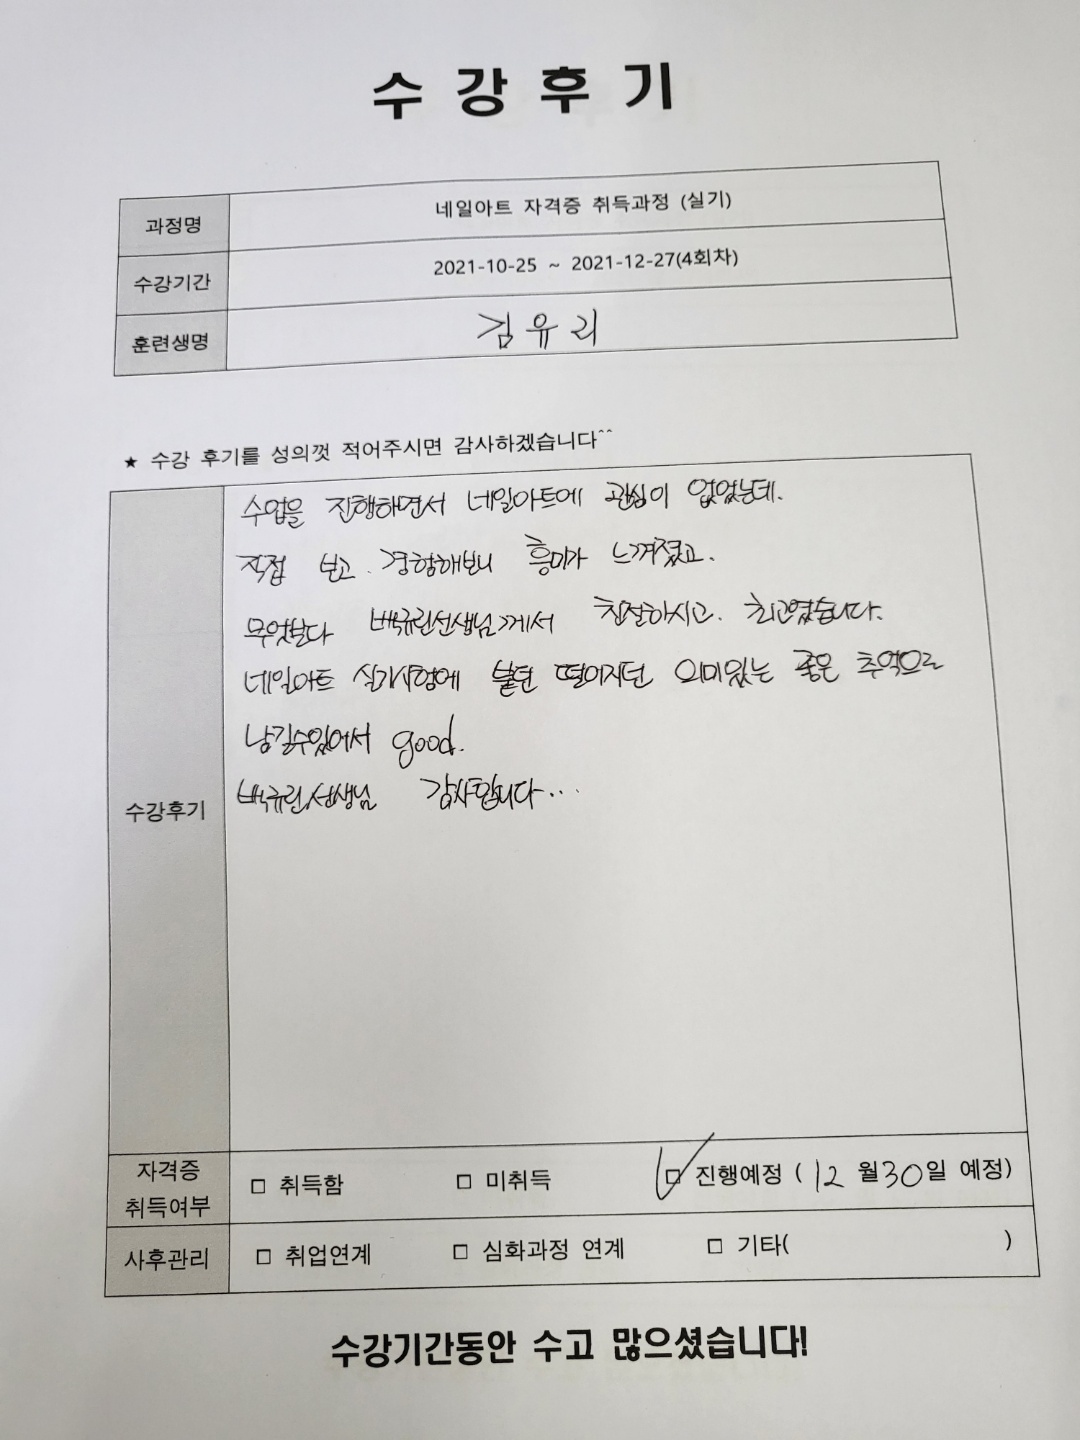 수강후기
과정명 네일아트 자격증 취득과정 (실기)
수강기간 2021-10-25 ~ 2021-12-27(4회차)
훈련생명 김유리
★ 수강 후기를 성의껏 적어주시면 감사하겠습니다^^
수업을 진행하면서 네일아트에 관심이 없었는데.
직접 보고. 경험해보니 흥미가 느껴졌고.
무엇보다 백규린선생님께서 친절하시고. 최고였습니다.
네일아트 실기시험에 붙던 떨어지던 의미있는 좋은 추억으로
남길수있어서 good.
수강후기
백규린선생님 감사합니다...
자격증 취득여부 □ 취득함 □ 미취득 □ 진행예정 ( 12 월 30 일 예정)
사후관리 □ 취업연계 □ 심화과정 연계 □ 기타( )
수강기간동안 수고 많으셨습니다!